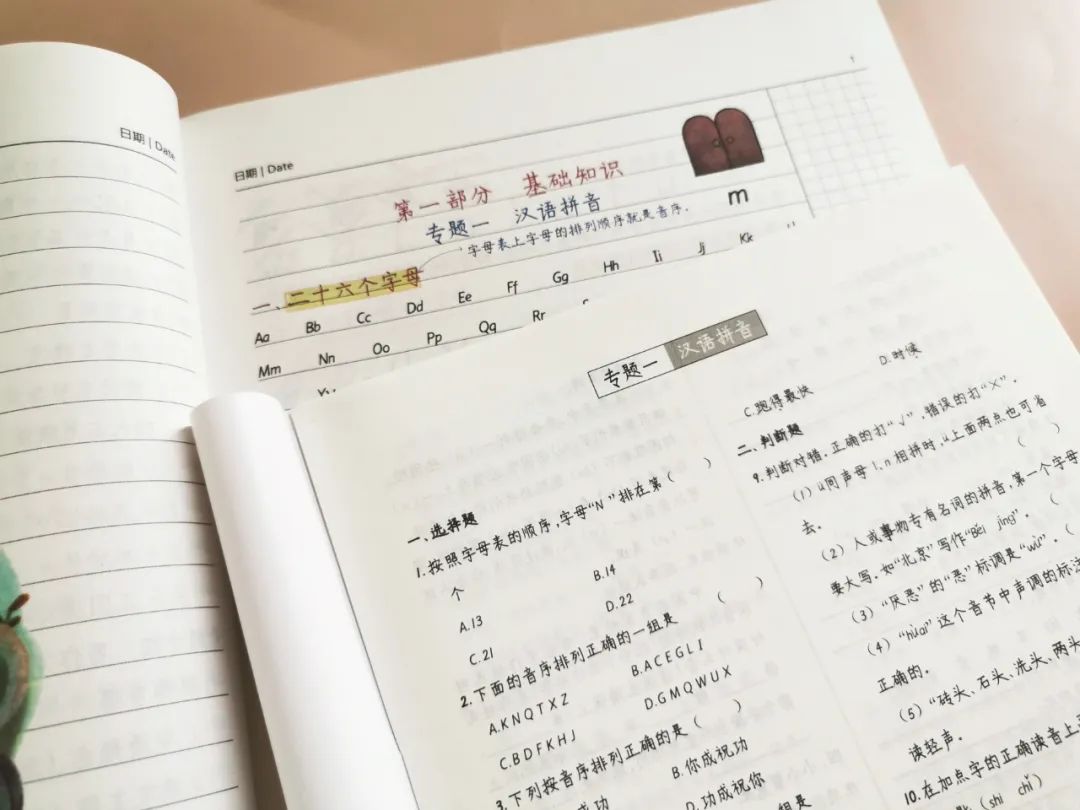 日期 | Date
1
日期 | Date
第一部分 基础知识
专题一 汉语拼音
m
字母表上字母的排列顺序就是音序.
一、二十六个字母
Aa Bb Cc Dd Ee Ff Gg Hh Ii Jj Kk
Mm Nn Oo Pp Qq Rr
专题一 汉语拼音
一、选择题
1.按照字母表的顺序,字母“N”排在第( )
个
A.13 B.14
C.21 D.22
2.下面的音序排列正确的一组是 ( )
A.KNQTXZ B.ACEGLI
C.BDFKHJ D.GMQWUX
3.下列按音序排列正确的是( )
成功 B.你成祝功
D.功成祝你
C.跑得最快 D.时候
二、判断题
9.判断对错,正确的打“√”,错误的打“×”.
(1)ü同声母l,n相拼时,ü上面两点也可省
去. ( )
(2)人或事物专有名词的拼音,第一个字母
要大写.如“北京”写作“Běi jīng”. (
(3)“厌恶”的“恶”标调是“wù”. (
(4)“hüai”这个音节中声调的标注
正确的.
(5)“砖头、石头、洗头、两头
读轻声.
10.在加点字的正确读音上
(shi chí)